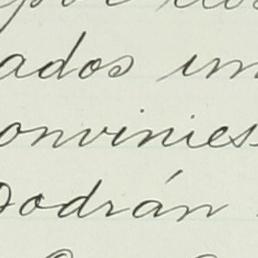 ados un
onvinies
podrán